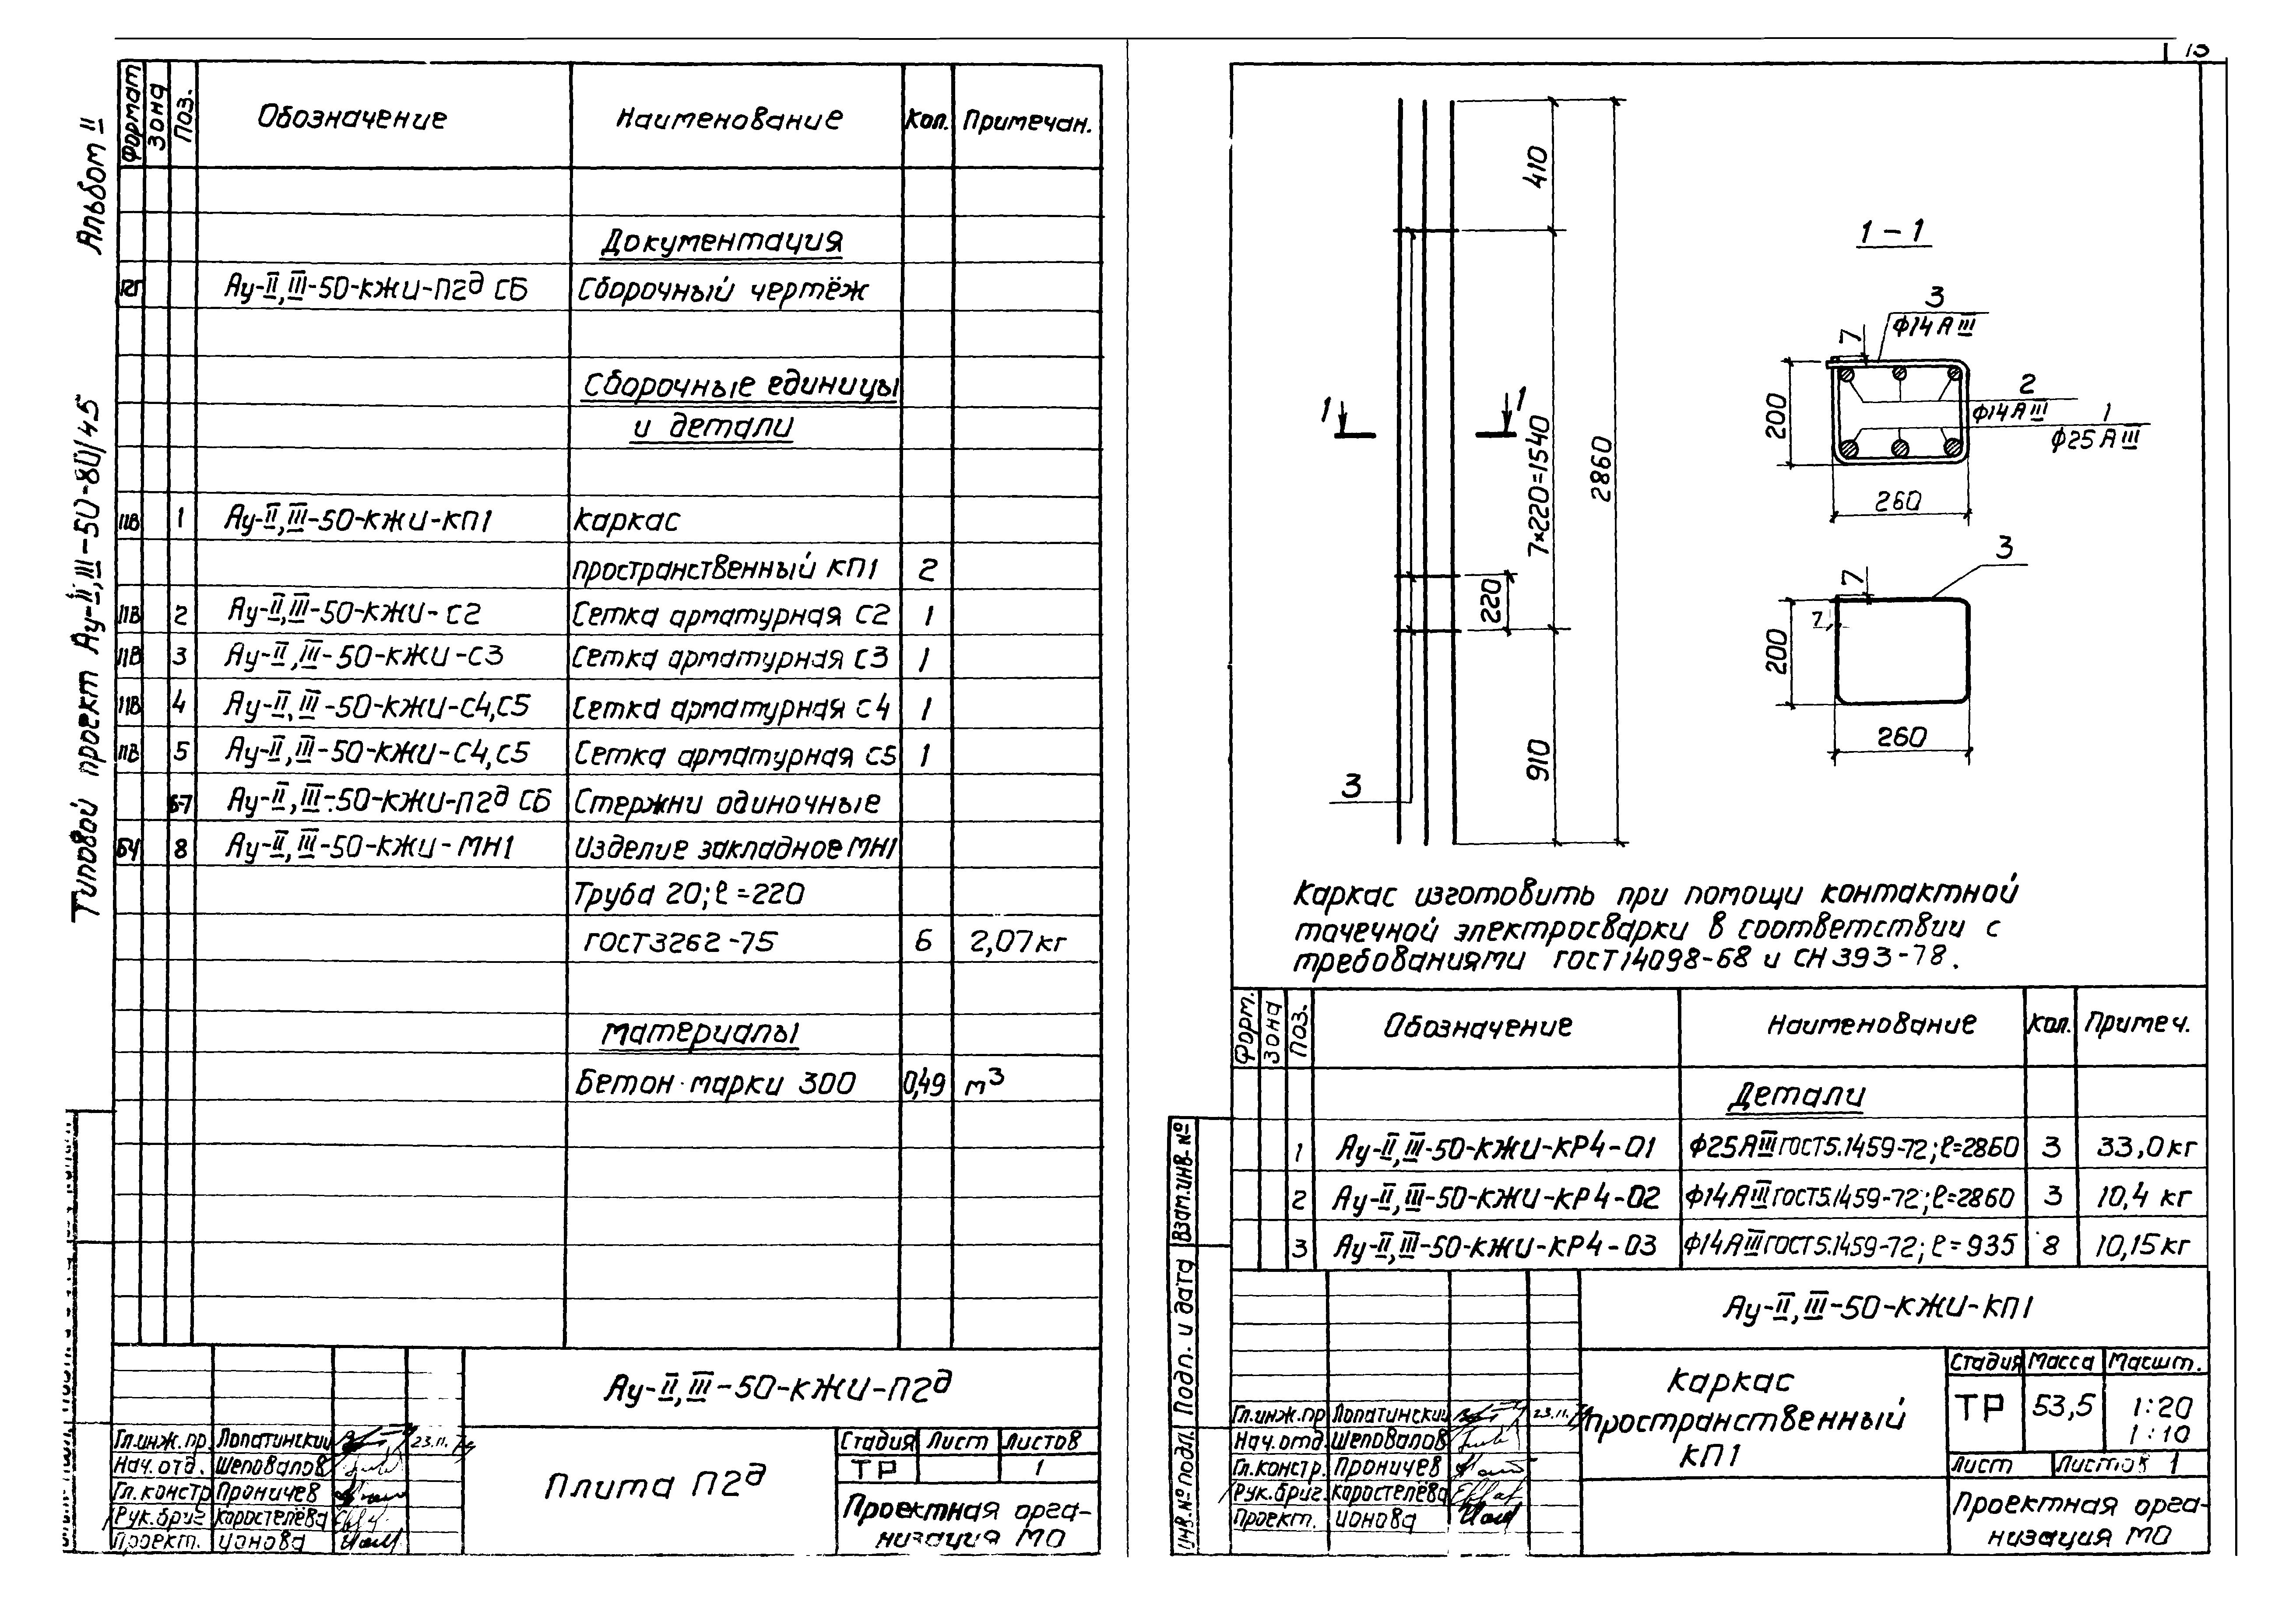 Альбом II
Типовой проект Ау-II,III-50-80/45
Формат Зона Поз. Обозначение Наименование Кол. Примечан.
Документация
12Г Ау-II,III-50-КЖИ-П2д СБ Сборочный чертёж
Сборочные единицы
и детали
11В 1 Ау-II,III-50-КЖИ-КП1 Каркас
пространственный КП1 2
11В 2 Ау-II,III-50-КЖИ-С2 Сетка арматурная С2 1
11В 3 Ау-II,III-50-КЖИ-С3 Сетка арматурная С3 1
11В 4 Ау-II,III-50-КЖИ-С4,С5 Сетка арматурная С4 1
11В 5 Ау-II,III-50-КЖИ-С4,С5 Сетка арматурная С5 1
6-7 Ау-II,III-50-КЖИ-П2д СБ Стержни одиночные
БЧ 8 Ау-II,III-50-КЖИ-МН1 Изделие закладное МН1
Труба 20; ℓ=220
ГОСТ3262-75 6 2,07кг
Материалы
Бетон марки 300 0,49 м³
Ау-II,III-50-КЖИ-П2д
Гл.инж.пр. Лопатинский 23.11.79
Нач.отд. Шеповалов
Гл.констр Проничев
Рук.бриг Коростелёва
Проект. Ионова
Плита П2д
Стадия Лист Листов
ТР 1
Проектная орга-
низация МО
13
410
7×220=1540
2860
220
910
1 1
3
1-1
3
Ф14АIII
7
2
Ф14АIII
1
Ф25АIII
200
260
3
7
7
200
260
Каркас изготовить при помощи контактной
точечной электросварки в соответствии с
требованиями ГОСТ14098-68 и СН393-78.
Форм. Зона Поз. Обозначение Наименование Кол. Примеч.
Детали
1 Ау-II,III-50-КЖИ-КР4-01 Ф25АIIIГОСТ5.1459-72; ℓ=2860 3 33,0кг
2 Ау-II,III-50-КЖИ-КР4-02 Ф14АIIIГОСТ5.1459-72; ℓ=2860 3 10,4 кг
3 Ау-II,III-50-КЖИ-КР4-03 Ф14АIIIГОСТ5.1459-72; ℓ=935 8 10,15кг
Ау-II,III-50-КЖИ-КП1
Взам.инв.№
Подп. и дата
Инв.№ подл.
Гл.инж.пр Лопатинский 23.11.79
Нач.отд. Шеповалов
Гл.констр. Проничев
Рук.бриг. Коростелёва
Проект. Ионова
Каркас
пространственный
КП1
Стадия Масса Масшт.
ТР 53,5 1:20
1:10
Лист Листов 1
Проектная орга-
низация МО